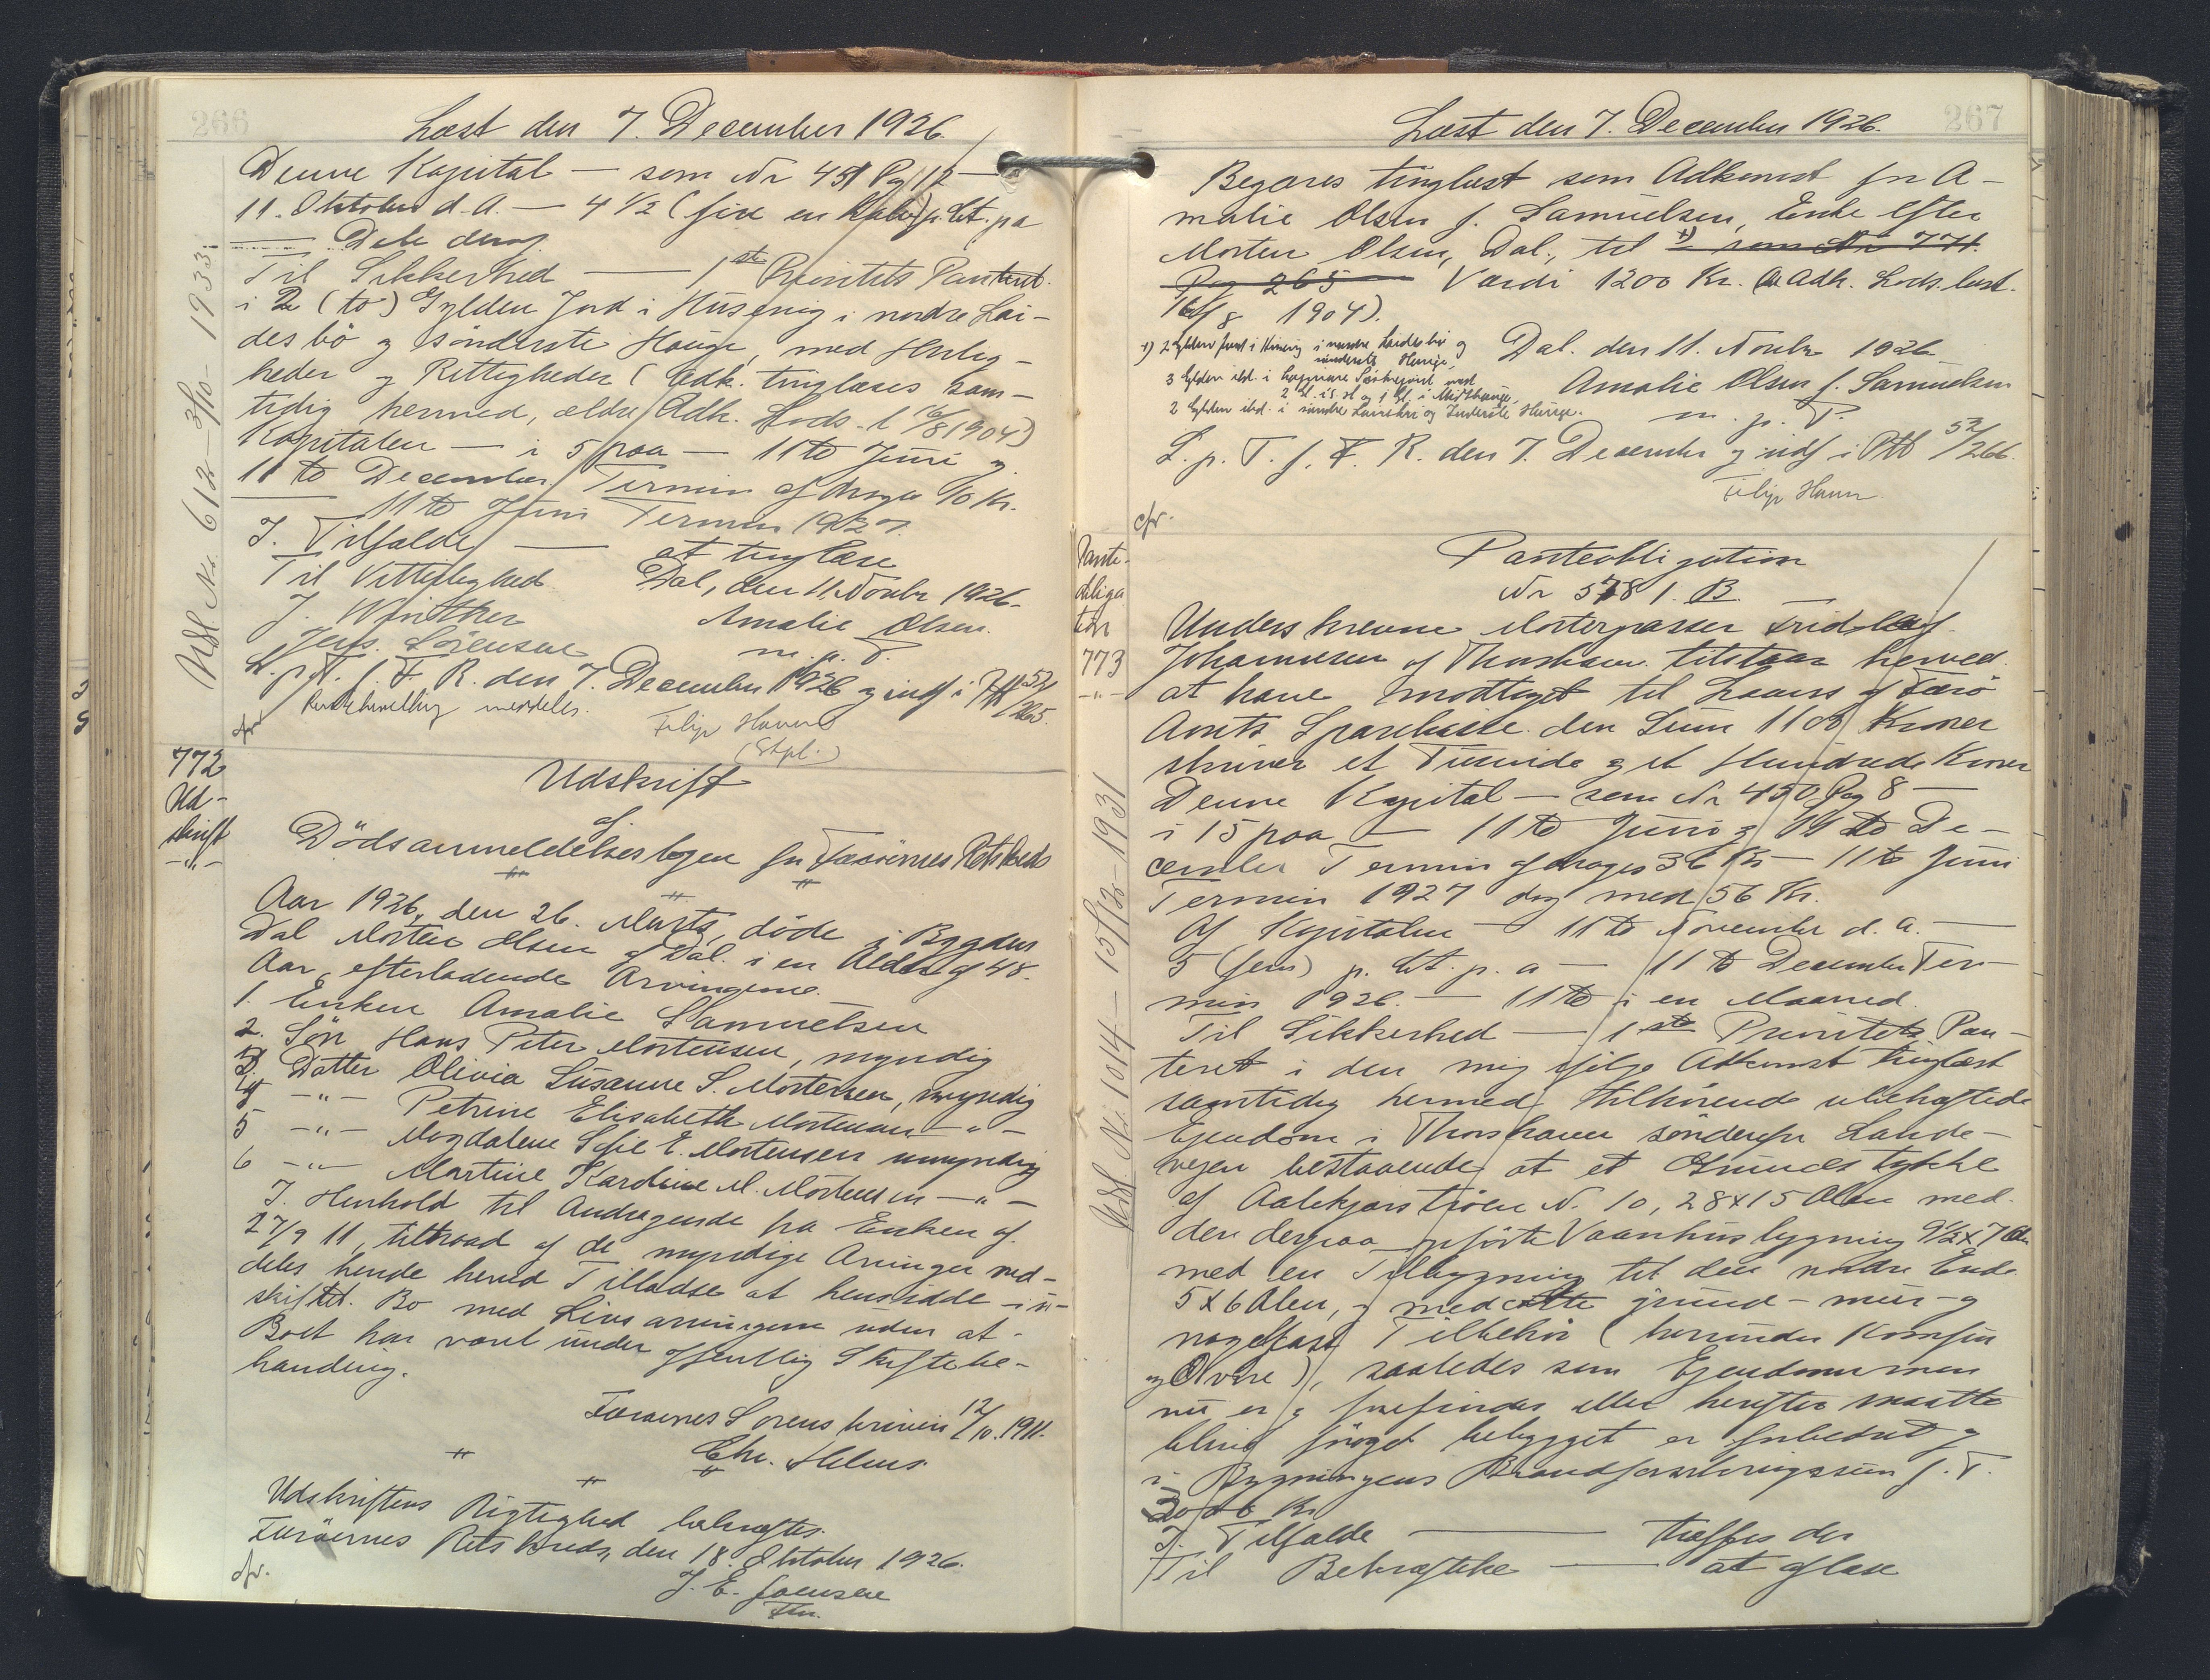 266
Læst den 7. December 1926.
Denne Kapital — som Nr 451 Pag 12 —
11. Oktober d. A. — 4 1/2 (fire en halv) p. Ct. p a
Dele deraf
Til Sikkerhed — 1st Prioritets Panteret
i 2 (to) Gylden Jord i Húsavig i nordre Lai-
des bö og sönderste Hauge, med Herlig-
heder og Rettigheder (Adk. tinglæses sam-
tidig hermed, ældre Adk. Lods. l. 16/8 1904)
Kapitalen — i 5 paa — 11te Juni og
11te December Termin afdrages 10 Kr.
11te Juni Termin 1927.
I. Tilfælde — at tinglæse
Til Vitterlighed Dal, den 11. Novbr 1926.
J. Winther Amalie Olsen.
Jens. Sörensen m. p. P.
L. p. T. f. F. R. den 7. December 1926 og indf i Ptb 52/265.
meddeles. Filip Hann
(Stpl.)
cfr
Udsl. Nr. 612 — 3/10 - 1933.
772
Ud-
skrift
—"—
Udskrift
af
Dödsanmeldelsesbogen for Færöernes Retskreds
Aar 1926, den 26. Marts, döde i Bygden
Dal Morten Olsen af Dal. i en Alder af 48.
Aar, efterladende Arvingerne.
1. Enken Amalie Samuelsen
2. Sön Hans Peter Mortensen, myndig
3. Datter Olivia Susanne S. Mortensen, myndig
4 —"— Petrine Elisabeth Mortensen —"—
5 —"— Magdalene Sofie E. Mortensen umyndig
6 —"— Martine Kardine M. Mortensen —"—
I. Henhold til Andragende fra Enken af
27/9 11, tiltraad af de myndige Arvinger med-
deles hende herved Tilladse at hensidde i ú-
skiftet. Bo med Livsarvingerne uden at
Boet har været under offentlig Skiftebe-
handling.
Færøernes Sorenskriveri 12/10. 1911.
Chr. Aleus
Udskriftens Rigtighed bekræftes.
Færöernes Retskreds, den 18. Oktober 1926.
J. E. Joensen
Fm.
cfr.
267
Læst den 7. December 1926.
Begæres tinglæst som Adkomst for A-
malie Olsen f. Samuelsen, Enke efter
Morten Olsen, Dal., til 1) som Nr 771.
Pag 265 Værdi 1200 Kr. (æ Adk. Lods. læst.
16/8 1904).
1) 2 Gylden Jord i Húsavig i nordre Laidesbö og
sönderste Hauge,
3 Gylden ibd. i
2 Gl. i s. st og 1 Gl. i Midthauge,
2 Gylden ibd. i söndre og Inderste Hauge.
Dal. den 11. Novbr 1926
Amalie Olsen f. Samuelsen
m. p. P.
L. p. T. f. F. R. den 7. December og indf i Ptb 52/266.
Filip Hann
cfr.
Pante-
obliga
tion
773
—"—
Udsl. Nr. 1014 — 15/12 - 1931
Panteobligation
Nr 578 l. B.
Underskrevne Motorpasser Fridleif
Johannesen af Thorshavn tilstaar herved
at have modtaget til Laans af Færö
Amts Sparekasse den Sum 1100 Kroner
skriver et Tusinde og et Hundrede Kroner
Denne Kapital — som Nr 450 Pag 8 —
i 15 paa — 11te Juni og 11te De-
cember Termin afdrages 36 Kr — 11te Juni
Termin 1927 dog med 56 Kr.
Af Kapitalen — 11te November d. a. —
5 (fem) p. Ct. p. a — 11te December Ter-
min 1926. — 11te i en Maaned
Til Sikkerhed — 1ste Prioritets Pan-
teret i den mig ifølge Adkomst tinglæst
samtidig hermed tilhörende ubehæftede
Ejendom i Thorshavn sönderfor Lande-
vejen bestaaende at et Grundstykke
af Aalekjærströen N. 10, 28 x 15 Alen med
den derpaa opförte Vaanhusbygning 9 1/2 x 7 Al.
med en Tilbygning til den nordre Ende
5 x 6 Alen, og med ætte grund- mur- og
nagelfast Tilbehör (herunder Komfur
og Ovne), saaledes som Ejendommen
nu er og forefindes eller herefter maatte
blive foröget bebygget er forbedret og
i Bygningens Brandforsikringssum f. T.
Kr
I. Tilfælde — træffes der
Til Bekræftelse — at aflæse